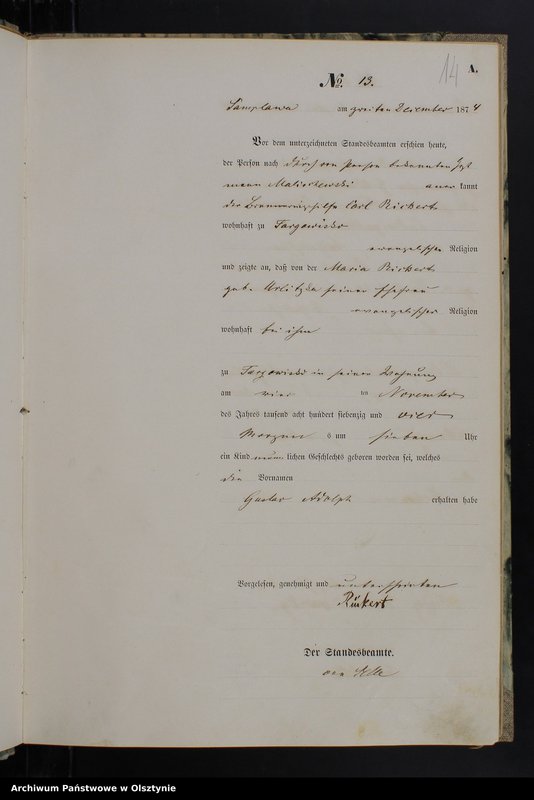 14
A.
№ 13.
Samplawa am zweiten Dezember 1874
Vor dem unterzeichneten Standesbeamten erschien heute,
der Person nach durch von Person bekannten
mann kannt
der Carl Rickert
wohnhaft zu Targowisko
evangelischer Religion
und zeigte an, daß von der Maria Rickert
geb. seiner Ehefrau
evangelischer Religion
wohnhaft bei ihm
zu Targowisko in seiner Wohnung
am vier ten November
des Jahres tausend acht hundert siebenzig und vier
Morgens um sieben Uhr
ein Kind männlichen Geschlechts geboren worden sei, welches
die Vornamen
Gustav Adolph erhalten habe
Vorgelesen, genehmigt und unterschrieben
Rückert
Der Standesbeamte.
Archiwum Państwowe w Olsztynie